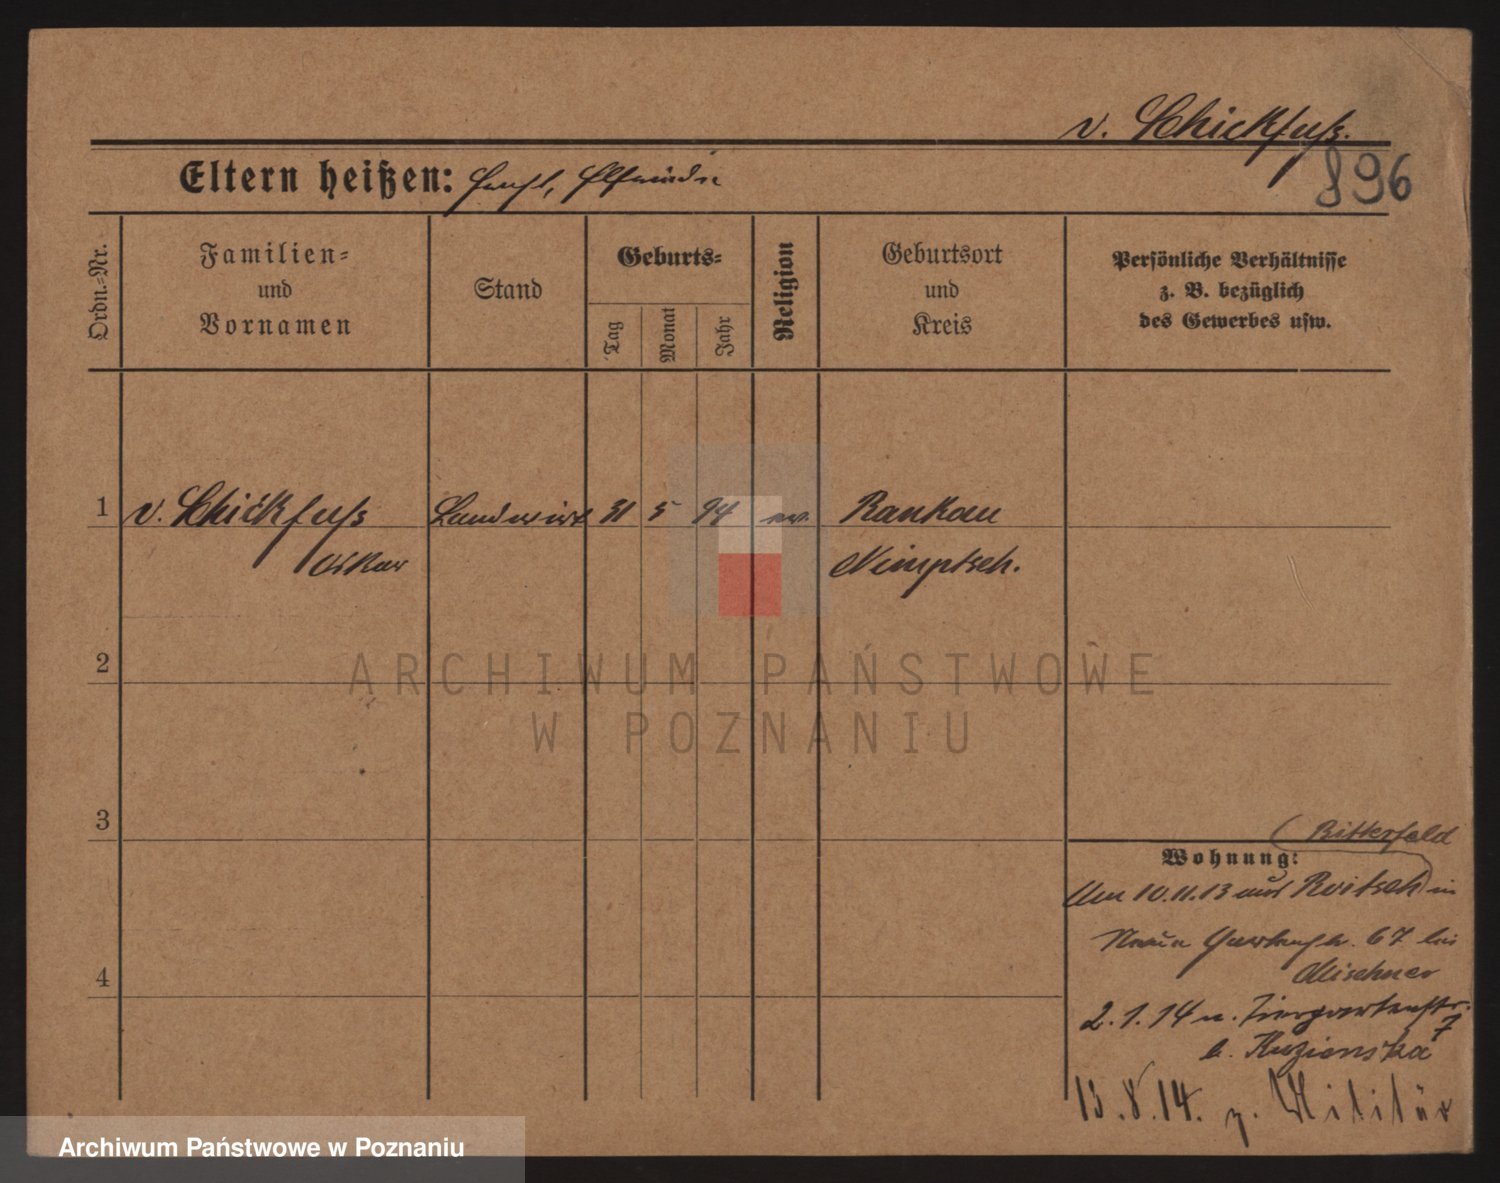 v. Schickfuß.
896
Eltern heißen: Elfriede
Ordn.-Nr.
Familien-
und
Vornamen
Stand
Geburts-
Tag
Monat
Jahr
Religion
Geburtsort
und
Kreis
Persönliche Verhältnisse
z. B. bezüglich
des Gewerbes usw.
1 v. Schickfuß Landwirt 31 5 94 ev. Rankau
Oskar Nimptsch.
2
3
4
(Bitterfeld
Wohnung:
Am 10.11.13 aus Roitsch) in
Neue Gartenstr. 67 bei
Mischner
2.1.14 n. Tiergartenstr.
7
b. Kuzienska
13.8.14. z. Militär
ARCHIWUM PAŃSTWOWE
W POZNANIU
Archiwum Państwowe w Poznaniu